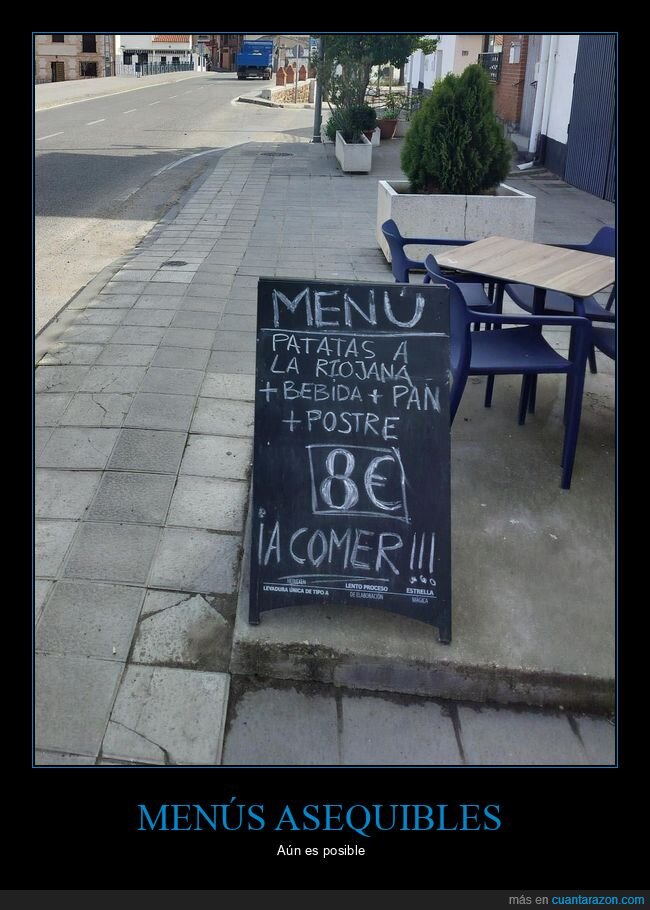 MENÚ
PATATAS A
LA RIOJANA
+ BEBIDA + PAN
+ POSTRE
8€
¡A COMER!!!
LEVADURA ÚNICA DE TIPO A
LENTO PROCESO
DE ELABORACIÓN
ESTRELLA
MÁGICA
MENÚS ASEQUIBLES
Aún es posible
más en cuantarazon.com